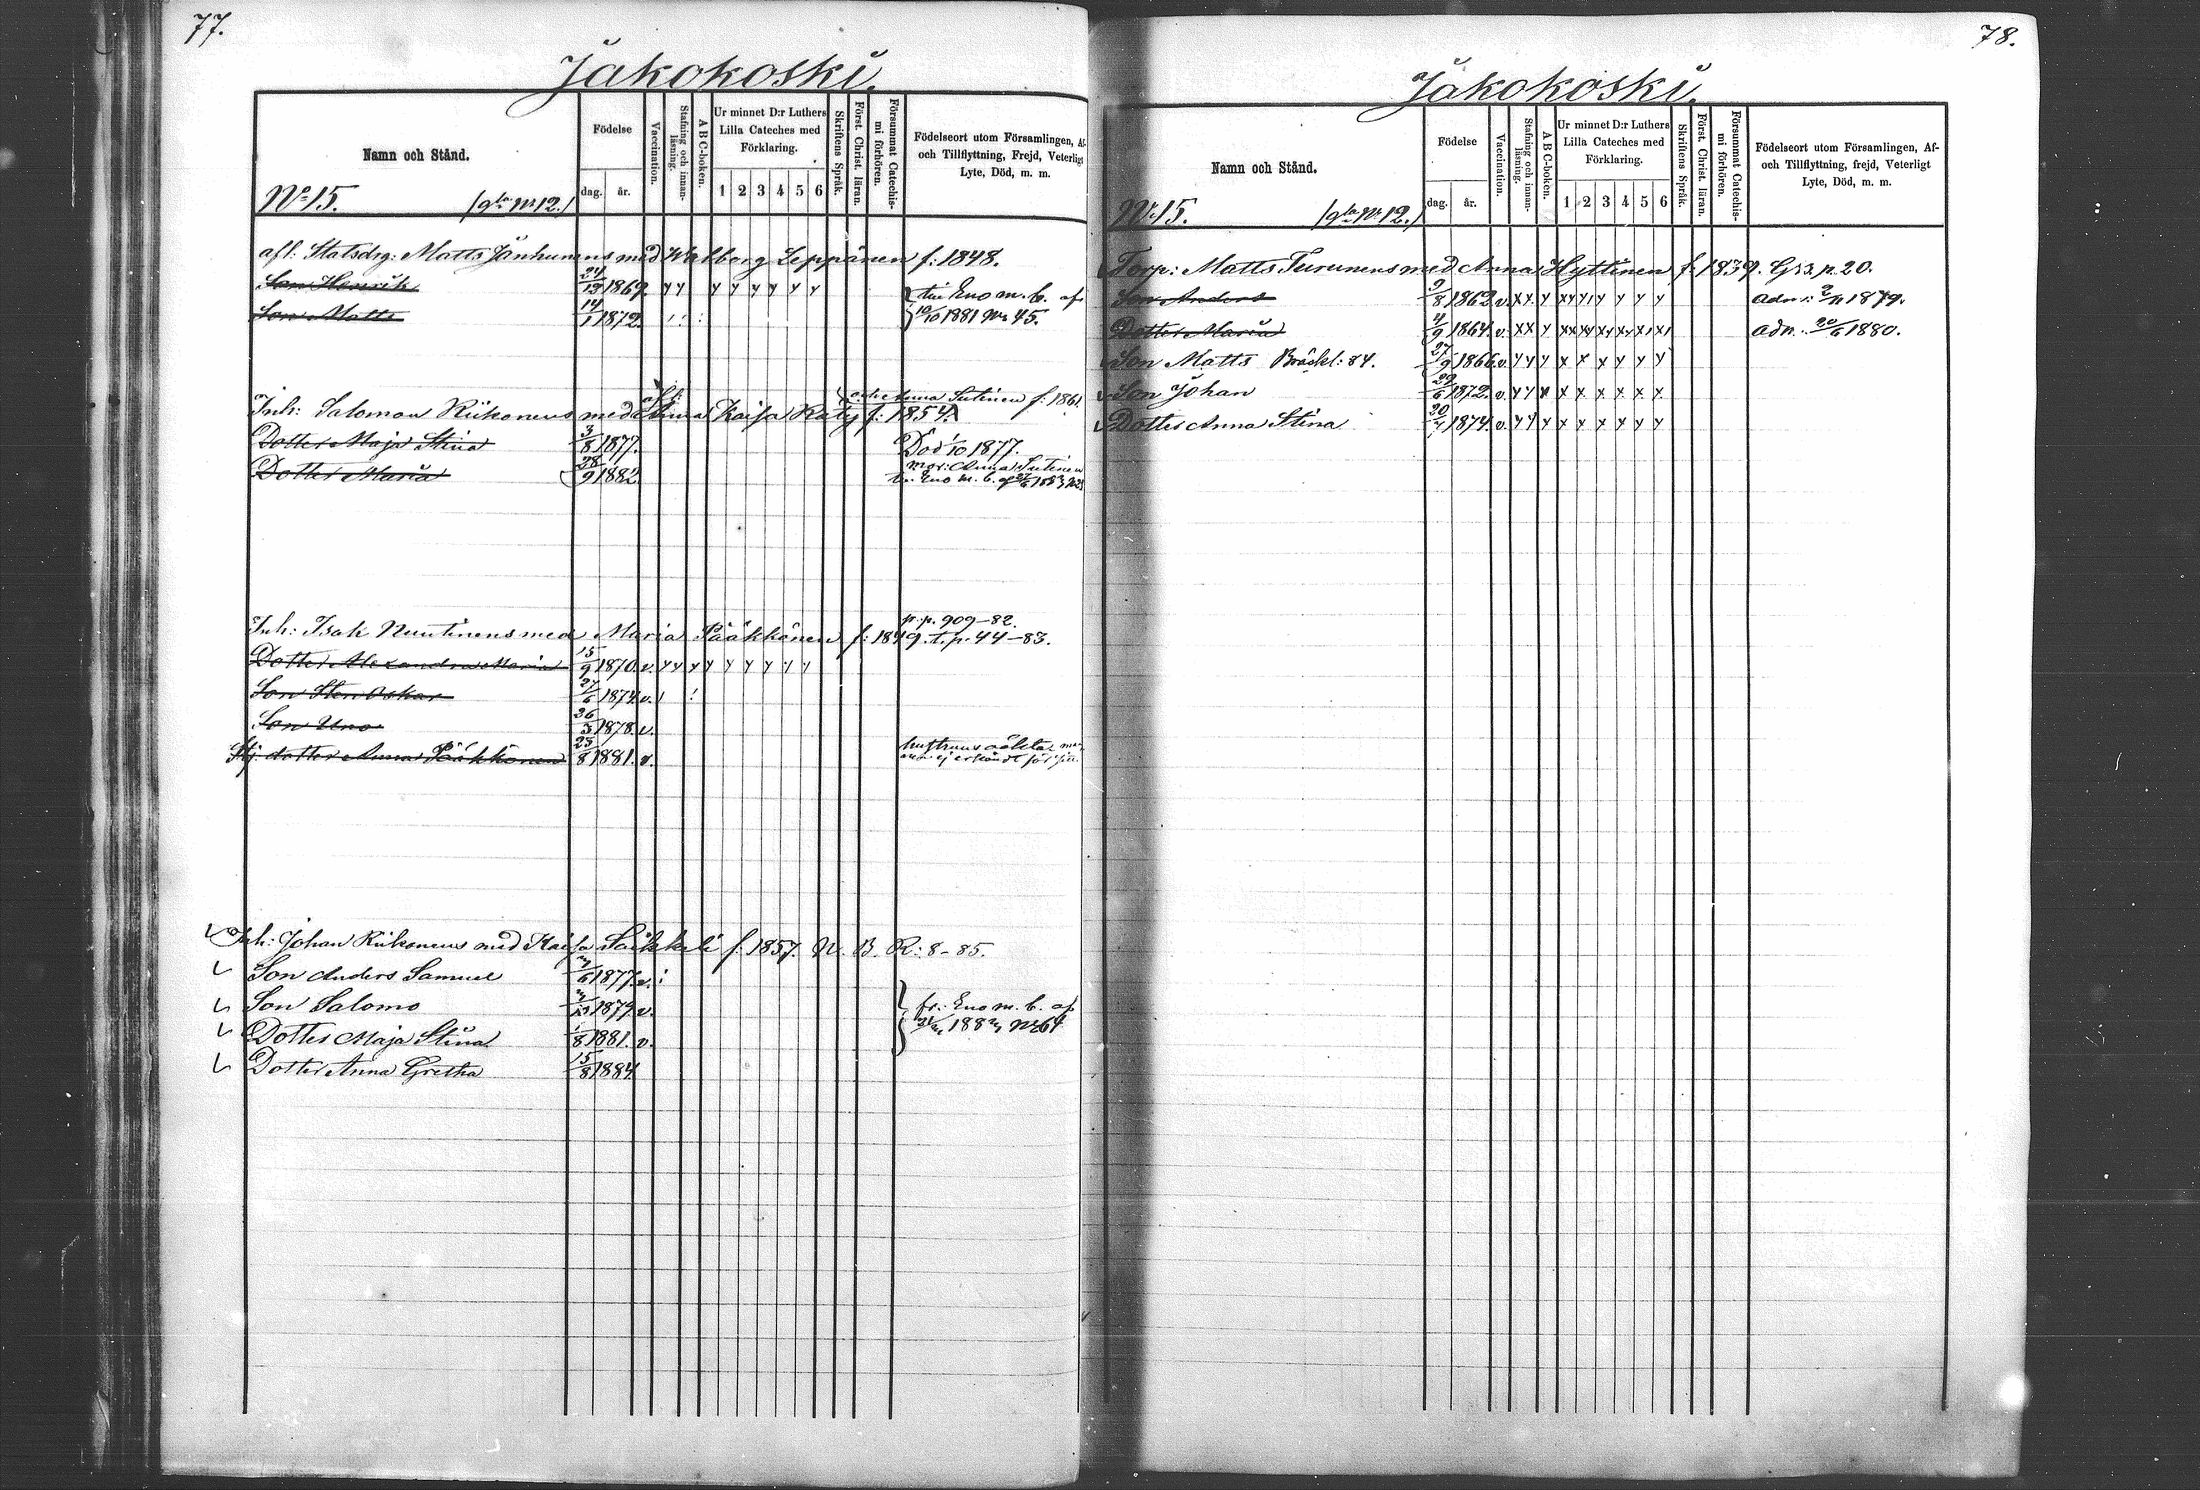 77.
Jakokoski.
Namn och Stånd.
Födelse
dag. år.
Vaccination.
Stafning och innanläsning.
A B C-boken.
Ur minnet D:r Luthers Lilla Cateches med Förklaring.
1 2 3 4 5 6
Skriftens Språk.
Först. Christ. läran.
Försummat Catechismi förhören.
Födelseort utom Församlingen, Af-
och Tillflyttning, Frejd, Veterligt
Lyte, Död, m. m.
No 15. (gla No 12.)
afl: Statsdrg: Matts Jänhunens med Walborg Leppänen f: 1848.
Son Henrik 24/12 1869. y y y y y y y y till Eno m. b. af
Son Matts 14/1 1872. 10/10 1881 No 45.
och Anna Sutinen f: 1861
Inh: Salomon Riikonens med afl: Anna Kaisa Räty f: 1854.
Dotter Maja Stina 3/8 1877. Död 1/10 1877.
Dotter Maria 28/9 1882 mor: Anna Sutinen
Eno m. b. af
p. p. 909-82.
Inh: Isak Nuutinens med Maria Pääkkönen f: 1849. t. p. 44-83.
Dotter Alexandra Maria 15/9 1870. v. y y y y y y y y y
Son Sten Oskar 27/6 1874. v.
Son Uno 26/3 1878. v.
dotter Anna Pääkkönen 25/8 1881. v. hustruns oäkta
Inh: Johan Riikonens med Kaisa Saikkeli f. 1857. N. B. R: 8-85.
Son Anders Samuel /6 1877. v.
Son Salomo 1879. v. fr: Eno m. b. af
Dotter Maja Stina 1/8 1881. v. No 64
Dotter Anna Gretha 15/8 1884
78.
Jakokoski.
Namn och Stånd.
Födelse
dag. år.
Vaccination.
Stafning och innanläsning.
A B C-boken.
Ur minnet D:r Luthers Lilla Cateches med Förklaring.
1 2 3 4 5 6
Skriftens Språk.
Först. Christ. läran.
Försummat Catechismi förhören.
Födelseort utom Församlingen, Af-
och Tillflyttning, frejd, Veterligt
Lyte, Död, m. m.
No 15. (gla No 12.)
Torp: Matts Turunens med Anna Hyttinen f. 1839. Gr 3, p. 20.
Son Anders 9/8 1862. v. 1879.
Dotter Maria 4/9 1864. v. adm. 20/6 1880.
Son Matts Bräckl: 84. 27/9 1866. v. y y y x x x y y y
Son Johan 29/6 1872. v. y y x x x x x x x
Dotter Anna Stina 20/7 1874. v. y y y x x x x x x